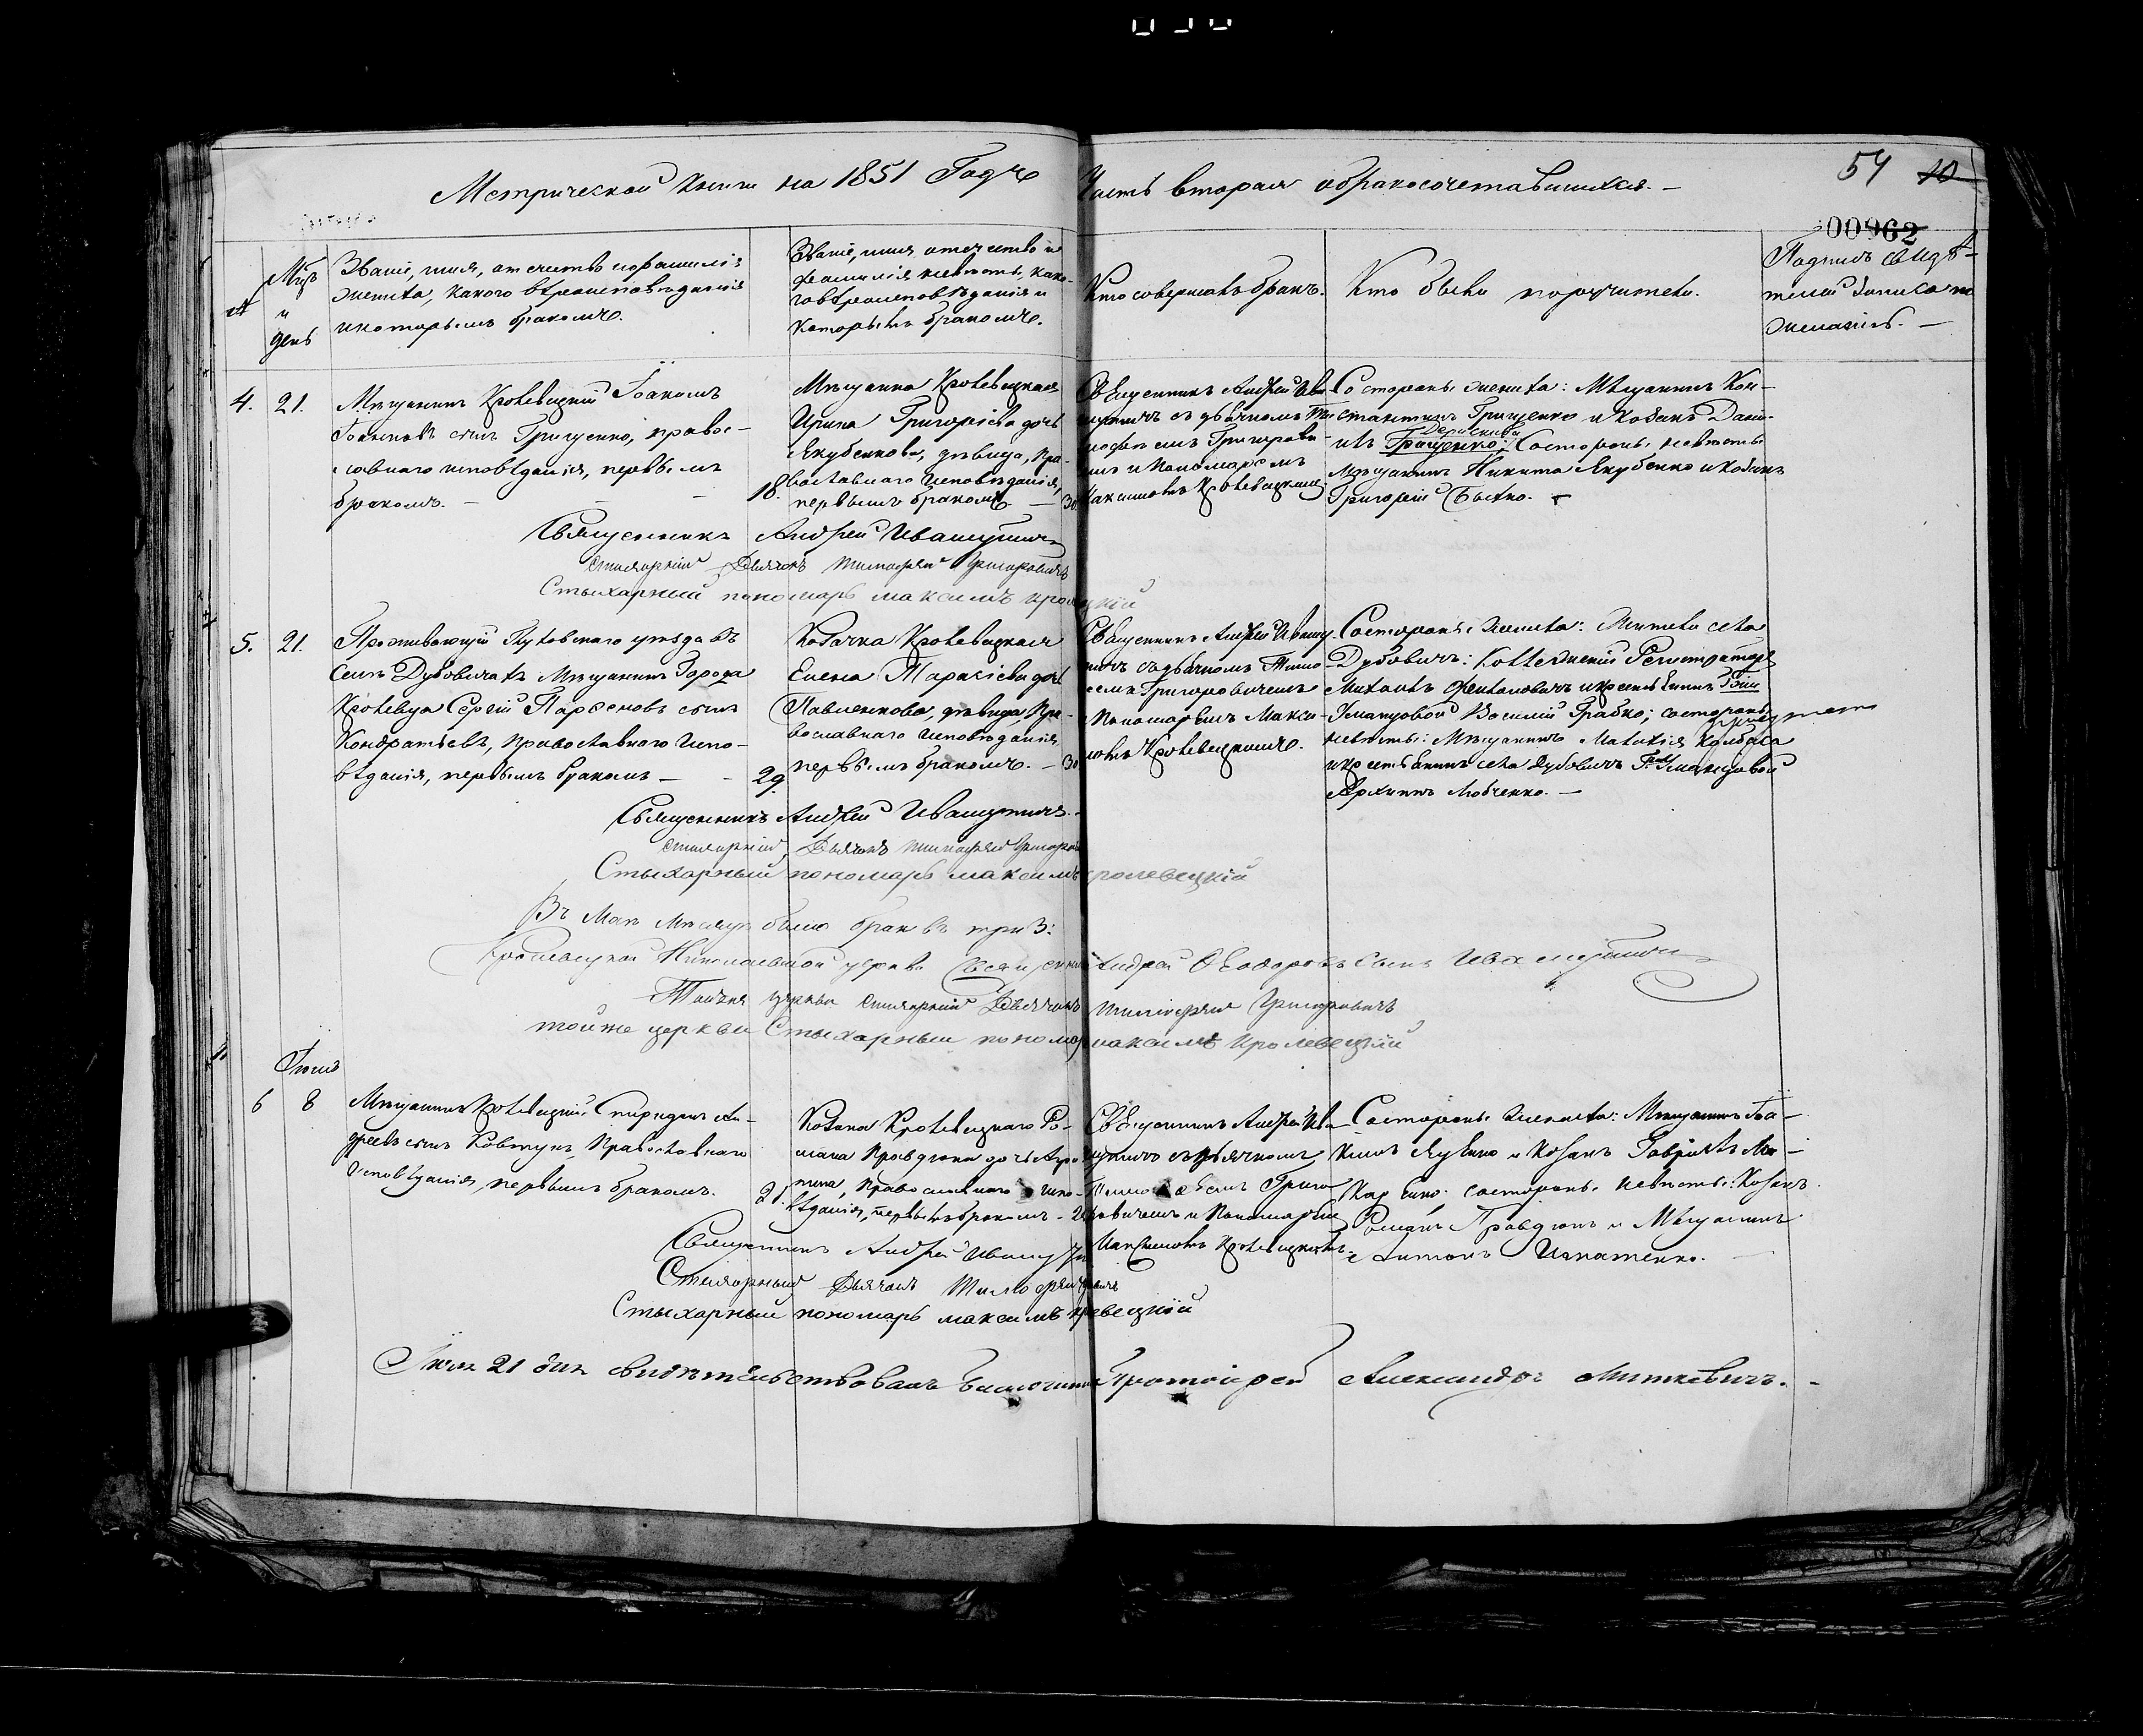 Метрической книги на 1851 Годъ Часть вторая о бракосочетавшихся. —
54 10
00962
№
Мцъ и день
Званіе, имя, отечество и фамилія
жениха, какого вѣроисповѣданія
и которымъ бракомъ.
Званіе, имя, отечество и
фамилія невѣсты, како-
го вѣроисповѣданія и
которымъ бракомъ.
Кто совершалъ бракъ.
Кто были поручители.
Подпись свидѣ-
телей записи по
желанію. —
4. 21.
Мѣщанинъ Кролевецкій Іоакимъ
сынъ Грищенко, право-
славнаго исповѣданія, первымъ
бракомъ. — 18.
Мѣщанка Кролевецкая
Ирина Григоріева дочь
Якубенкова, дѣвица, пра-
вославнаго исповѣданія,
первымъ бракомъ. — 30
Священникъ Андрей Ива-
шутичъ съ дьячкомъ Ти-
мофеемъ Григорови-
чемъ и Пономаремъ
Максимомъ Кролевецкимъ
Со стороны жениха: Мѣщанинъ Кон-
стантинъ Грищенко и Козакъ Дани-
илъ Грищенко; Со стороны невѣсты
Мѣщанинъ Никита Якубенко и козакъ
Григорій Бычко. —
Священникъ Андрей Ивашутичъ
Стихарный Дьячокъ Тимофей Григоровичъ
Стыхарный пономарь максимъ кролевецкій
5. 21.
Проживающій Глуховскаго уѣзда въ
селѣ Дубовичахъ Мѣщанинъ Города
Кролевца Сергій Парѳеновъ сынъ
Кондратьевъ, православнаго испо-
вѣданія, первымъ бракомъ — 29.
Козачка Кролевецкая
Елена Тарасіева дочь
Павленкова, дѣвица, Пра-
вославнаго исповѣданія
первымъ бракомъ. — 30
Священникъ Андрей Ивашу-
тичъ съ дьячкомъ Тимо-
феемъ Григоровичемъ
и Пономаремъ Макси-
момъ Кролевецкимъ.
Со стороны жениха: Жители села
Дубовичъ: Коллежскій Регистраторъ
Михаилъ и крестьянинъ Гжи
Василій Грабко; со стороны
невѣсты: Мѣщанинъ Малахія Колбаса
и крестьянинъ села Дубовичъ Гжи
Архипъ Любченко. —
Священникъ Андрей Ивашутичъ. —
Стихарный Дьячокъ Тимофей Григоровичъ
Стыхарный пономарь максимъ кролевецкій
Въ Маѣ Мѣсяцѣ было браковъ три 3:
Кролевецкой Николаевской церкви Священникъ Андрей Ѳеодоровъ Сынъ Ивашутичъ
Тойже церкви Стихарный Дьячокъ Тимофей Григоровичъ
тойже церкви Стыхарный пономарь максимъ кролевецкій
Іюнь
6 8
Мѣщанинъ Кролевецкій Спиридонъ Ан-
дреевъ сынъ Ковтунъ, Православнаго
Исповѣданія, первымъ бракомъ. 21.
Козака Кролевецкаго Ро-
мана Правдюка дочь Агри-
пина, Православнаго испо-
вѣданія, первымъ бракомъ -
Священникъ Андрей Ива-
шутичъ съ дьячкомъ
Тимофеемъ Григо-
ровичемъ и Пономаремъ
Максимомъ Кролевецкимъ.
Со стороны жениха: Мѣщанинъ Іоа-
кимъ и Козакъ Гавріилъ Ма-
каренко; со стороны невѣсты: Козакъ
Романъ Правдюкъ и Мѣщанинъ
Антонъ Игнатенко. —
Священникъ Андрей Ивашутичъ
Стихарный Дьячокъ Тимофей Григоровичъ
Стыхарный пономарь максимъ кролевецкій
21 дня свидѣтельствовалъ Благочинный Протоіерей Александръ Миткевичъ. -